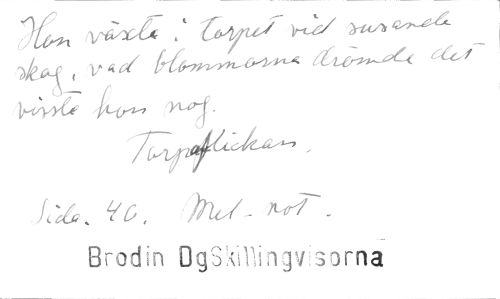 Hon växte i torpet vid susande
skog, vad blommorna drömde det
visste hon nog.
Torpaflickan.
Sida. 40. Mel-not.
Brodin DgSkillingvisorna